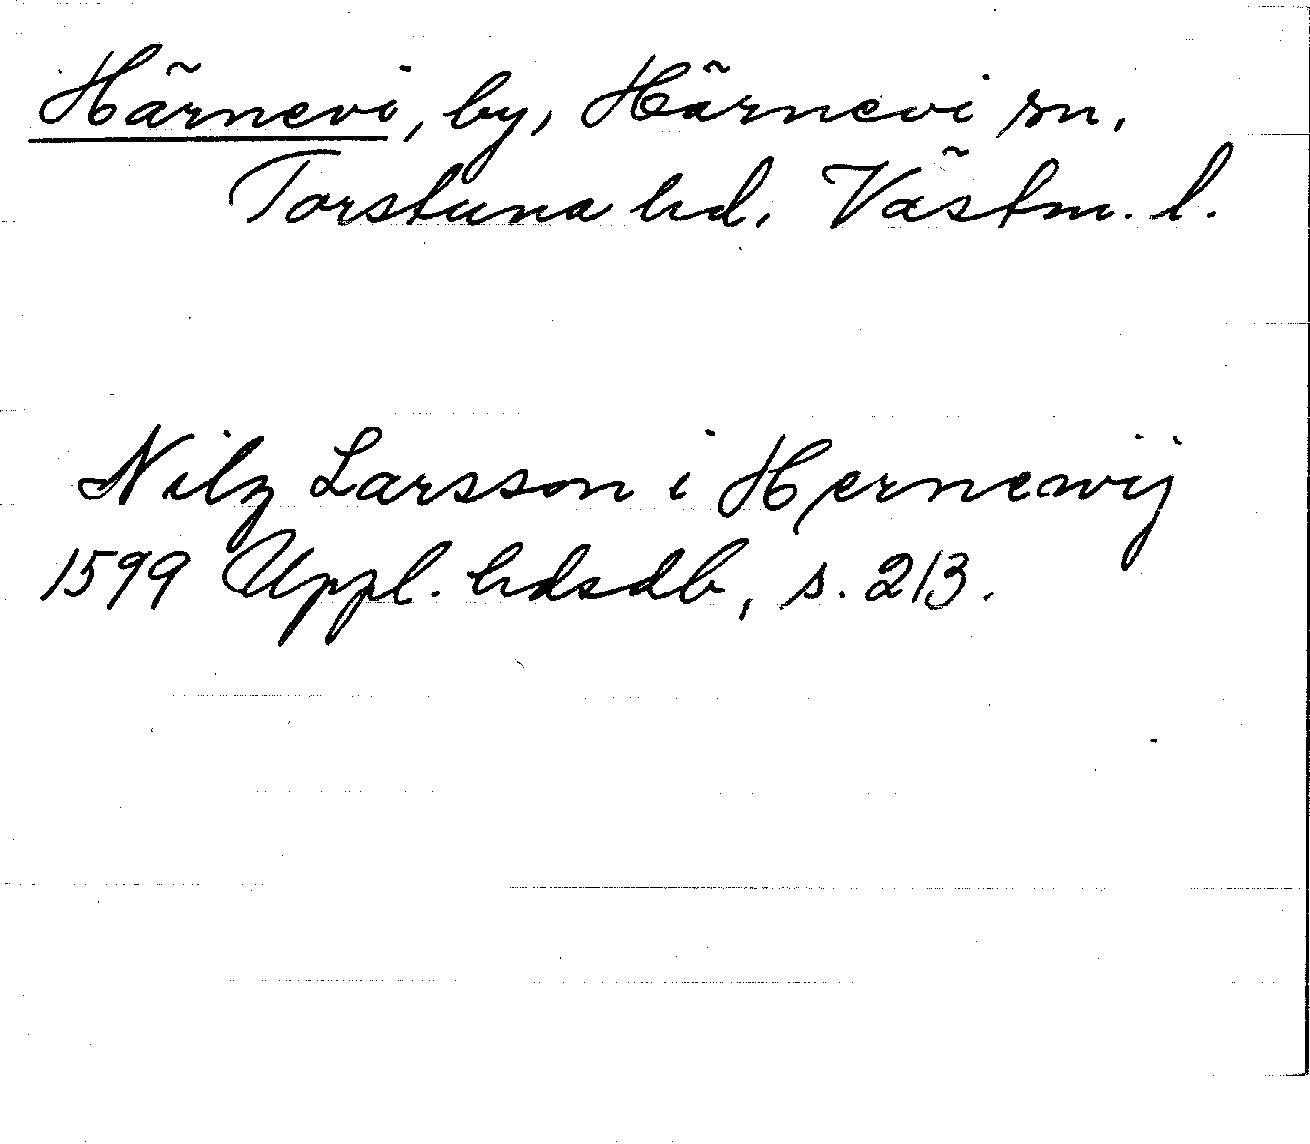 Härnevi, by, Härnevi sn,
Torstuna hd, Västm. l.
Nilz Larsson i Hernewij
1599 Uppl. hdsdb, s. 213.